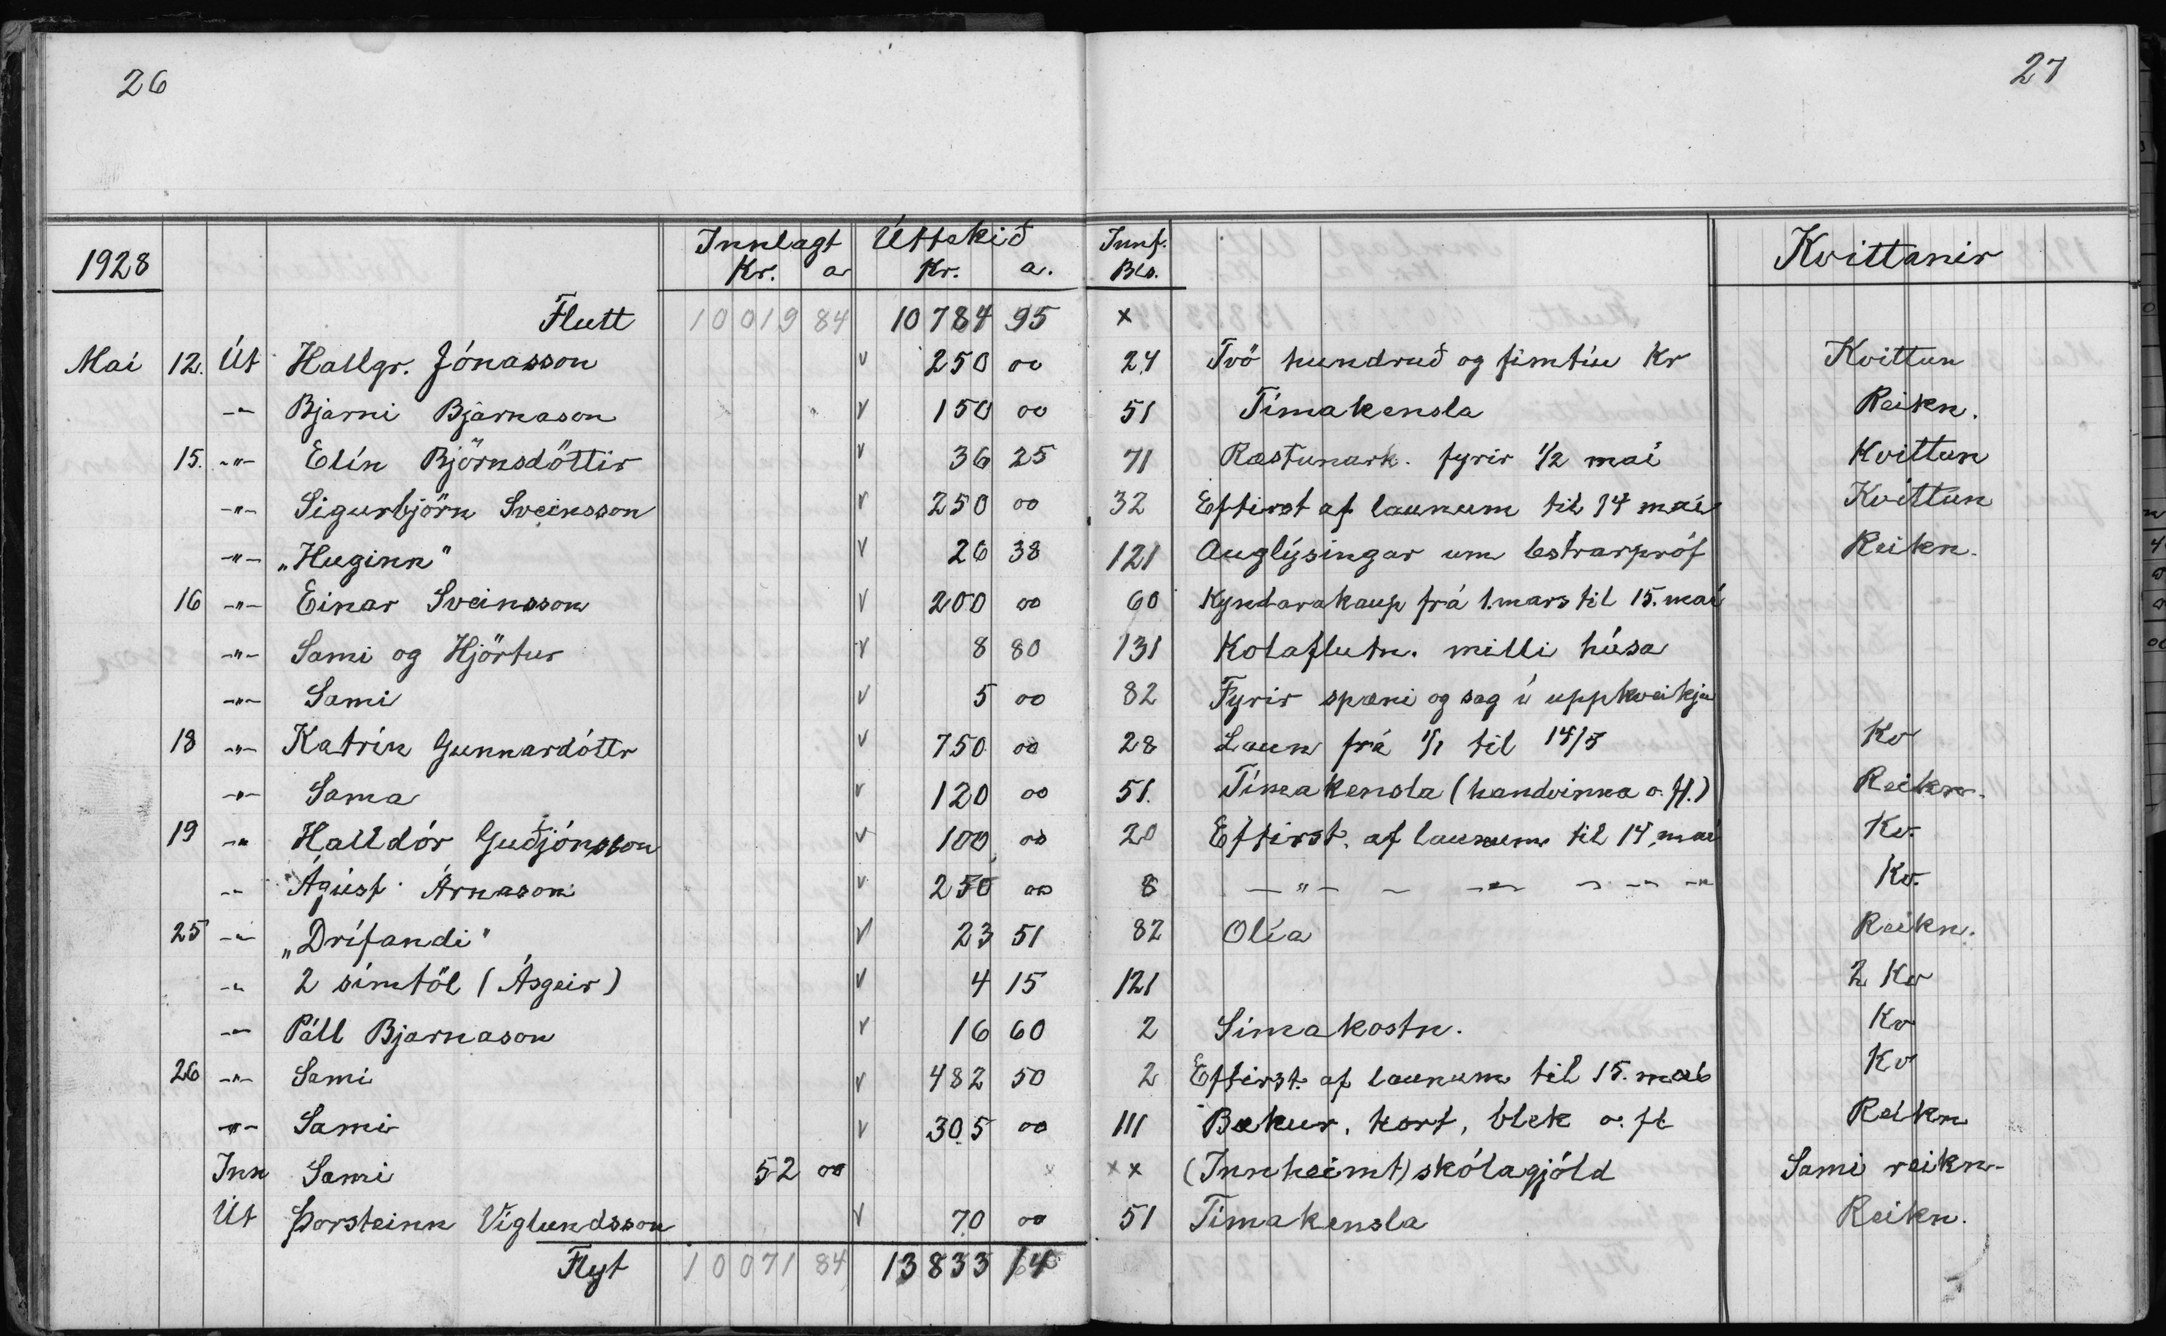 26
27
1928 Innlagt Úttekið Innf. Kvittanir
Kr. a Kr. a. Bls.
Flutt 10019 84 10784 95 x
Mai 12. Út Hallgr. Jónasson v 250 00 24 Tvö hundruð og fimtíu Kr Kvittun
-"- Bjarni Bjarnason v 150 00 51 Tímakensla Reikn.
15. -"- Elín Björnsdóttir v 36 25 71 Ræstunark. fyrir 1/2 maí Kvittun
-"- Sigurbjörn Sveinsson v 250 00 32 Eftirst af launum til 14 maí Kvittun
-"- „Huginn" v 26 38 121 Auglýsingar um lestrarpróf Reikn.
16 -"- Einar Sveinsson v 200 00 60 Kyndarakaup frá 1. mars til 15. maí
-"- Sami og Hjörtur v 8 80 131 Kolaflutn. milli húsa
-"- Sami v 5 00 82 Fyrir spæni og sag í uppkveikju
18 -"- Katrín Gunnardóttr v 750 00 28 Laun frá 1/1 til 14/5 Kv
-"- Sama v 120 00 51. Tímakensla (handvinna o. fl.) Reikn.
19 -"- Halldór Guðjónsson v 100 00 20 Eftirst. af launum til 14. maí Kv.
-"- Ágúst Árnason v 250 00 8 -"- - -"- - -"- -"- Kv.
25 -"- „Drífandi" v 23 51 82 Olía Reikn.
-"- 2 símtöl (Ásgeir) v 4 15 121 2 Kv
-"- Páll Bjarnason v 16 60 2 Símakostn. Kv
26 -"- Sami v 482 50 2 Eftirst. af launum til 15. maí Kv
-"- Sami v 305 00 111 Bækur, kort, blek o. fl Reikn
Inn Sami 52 00 x xx (Innheimt) skólagjöld Sami reikn-
Út Þorsteinn Víglundsson v 70 00 51 Tímakensla Reikn.
Flyt 10071 84 13833 14